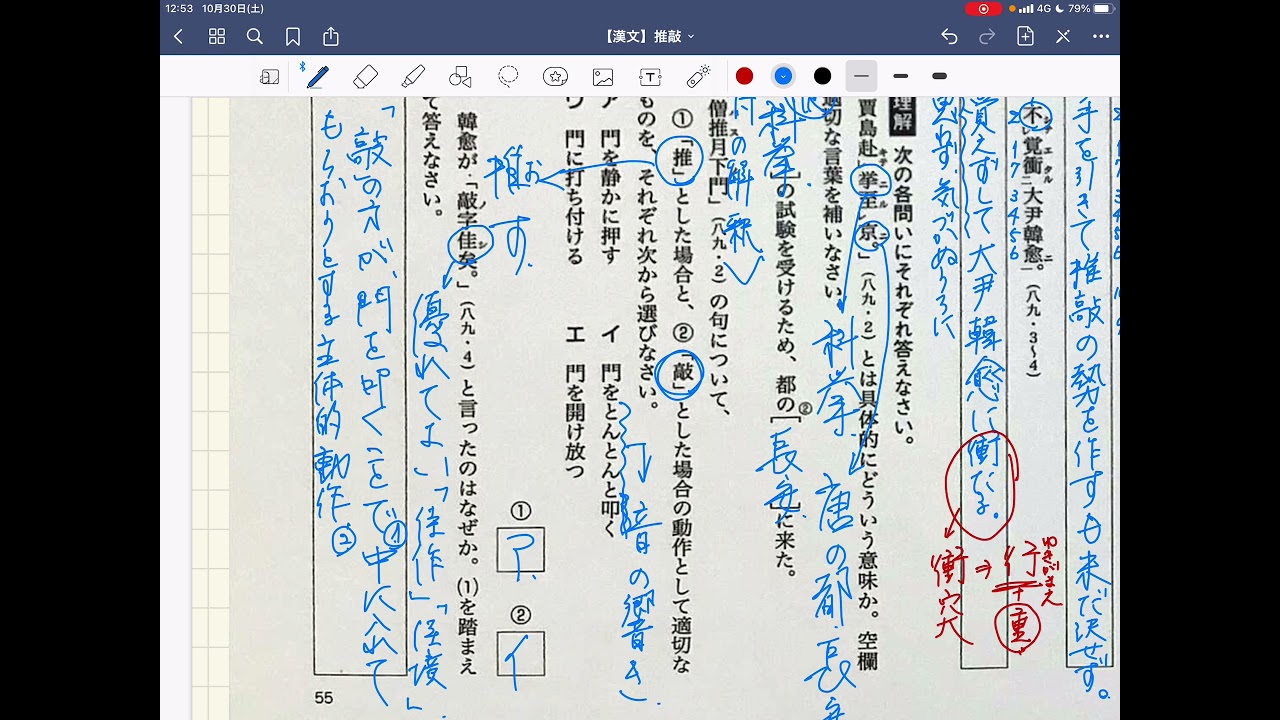 12:53 10月30日(土)
4G 79%
【漢文】推敲
手を引きて推敲の勢を作すも未だ決せず。
不覚衝大尹韓愈。(八九・3~4)
覚えずして大尹韓愈に衝たる。
思わず、気づかぬうちに
衝⇒行+重
ゆきがまえ
衝突
理解 次の各問いにそれぞれ答えなさい。
賈島赴挙至京。」(八九・2)とは具体的にどういう意味か。空欄
適切な言葉を補いなさい。
科挙 唐の都・長安
科挙]の試験を受けるため、都の②[長安]に来た。
僧推月下門」(八九・2)の句について、
の解釈
①「推」とした場合と、②「敲」とした場合の動作として適切な
ものを、それぞれ次から選びなさい。
推す
ア 門を静かに押す
イ 門をとんとんと叩く
ウ 門に打ち付ける
エ 門を開け放つ
音の響き
① ア
② イ
韓愈が、「敲字佳矣。」(八九・4)と言ったのはなぜか。(1)を踏まえ
て答えなさい。
優れてよい「佳作」「佳境」
「敲」の方が、門を叩くことで①中に入れて
もらおうとする主体的動作②
55